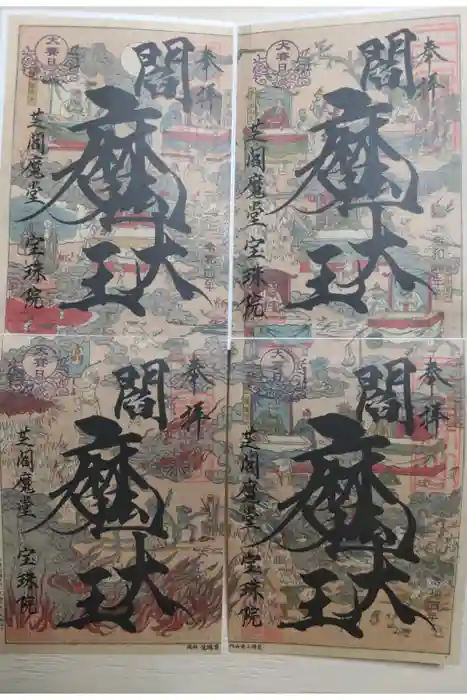 奉拝
閻魔大王
大賽日
芝閻魔堂 宝珠院
奉拝
閻魔大王
大賽日
芝閻魔堂 宝珠院
奉拝
閻魔大王
大賽日
芝閻魔堂 宝珠院
奉拝
閻魔大王
大賽日
芝閻魔堂 宝珠院